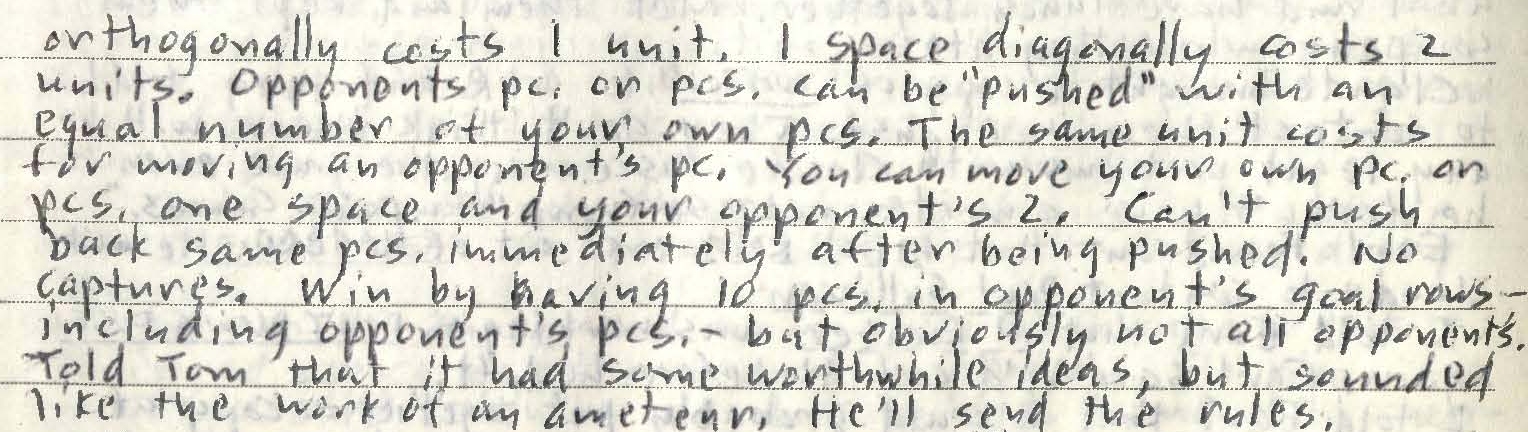 orthogonally costs 1 unit. 1 space diagonally costs 2
units. Opponents pc. or pcs. can be "pushed" with an
equal number of your own pcs. The same unit costs
for moving an opponent's pc. You can move your own pc. or
pcs. one space and your opponent's 2. Can't push
back same pcs. immediately after being pushed. No
captures. Win by having 10 pcs. in opponent's goal rows -
including opponent's pcs. - but obviously not all opponents.
Told Tom that it had some worthwhile ideas, but sounded
like the work of an ameteur. He'll send the rules.